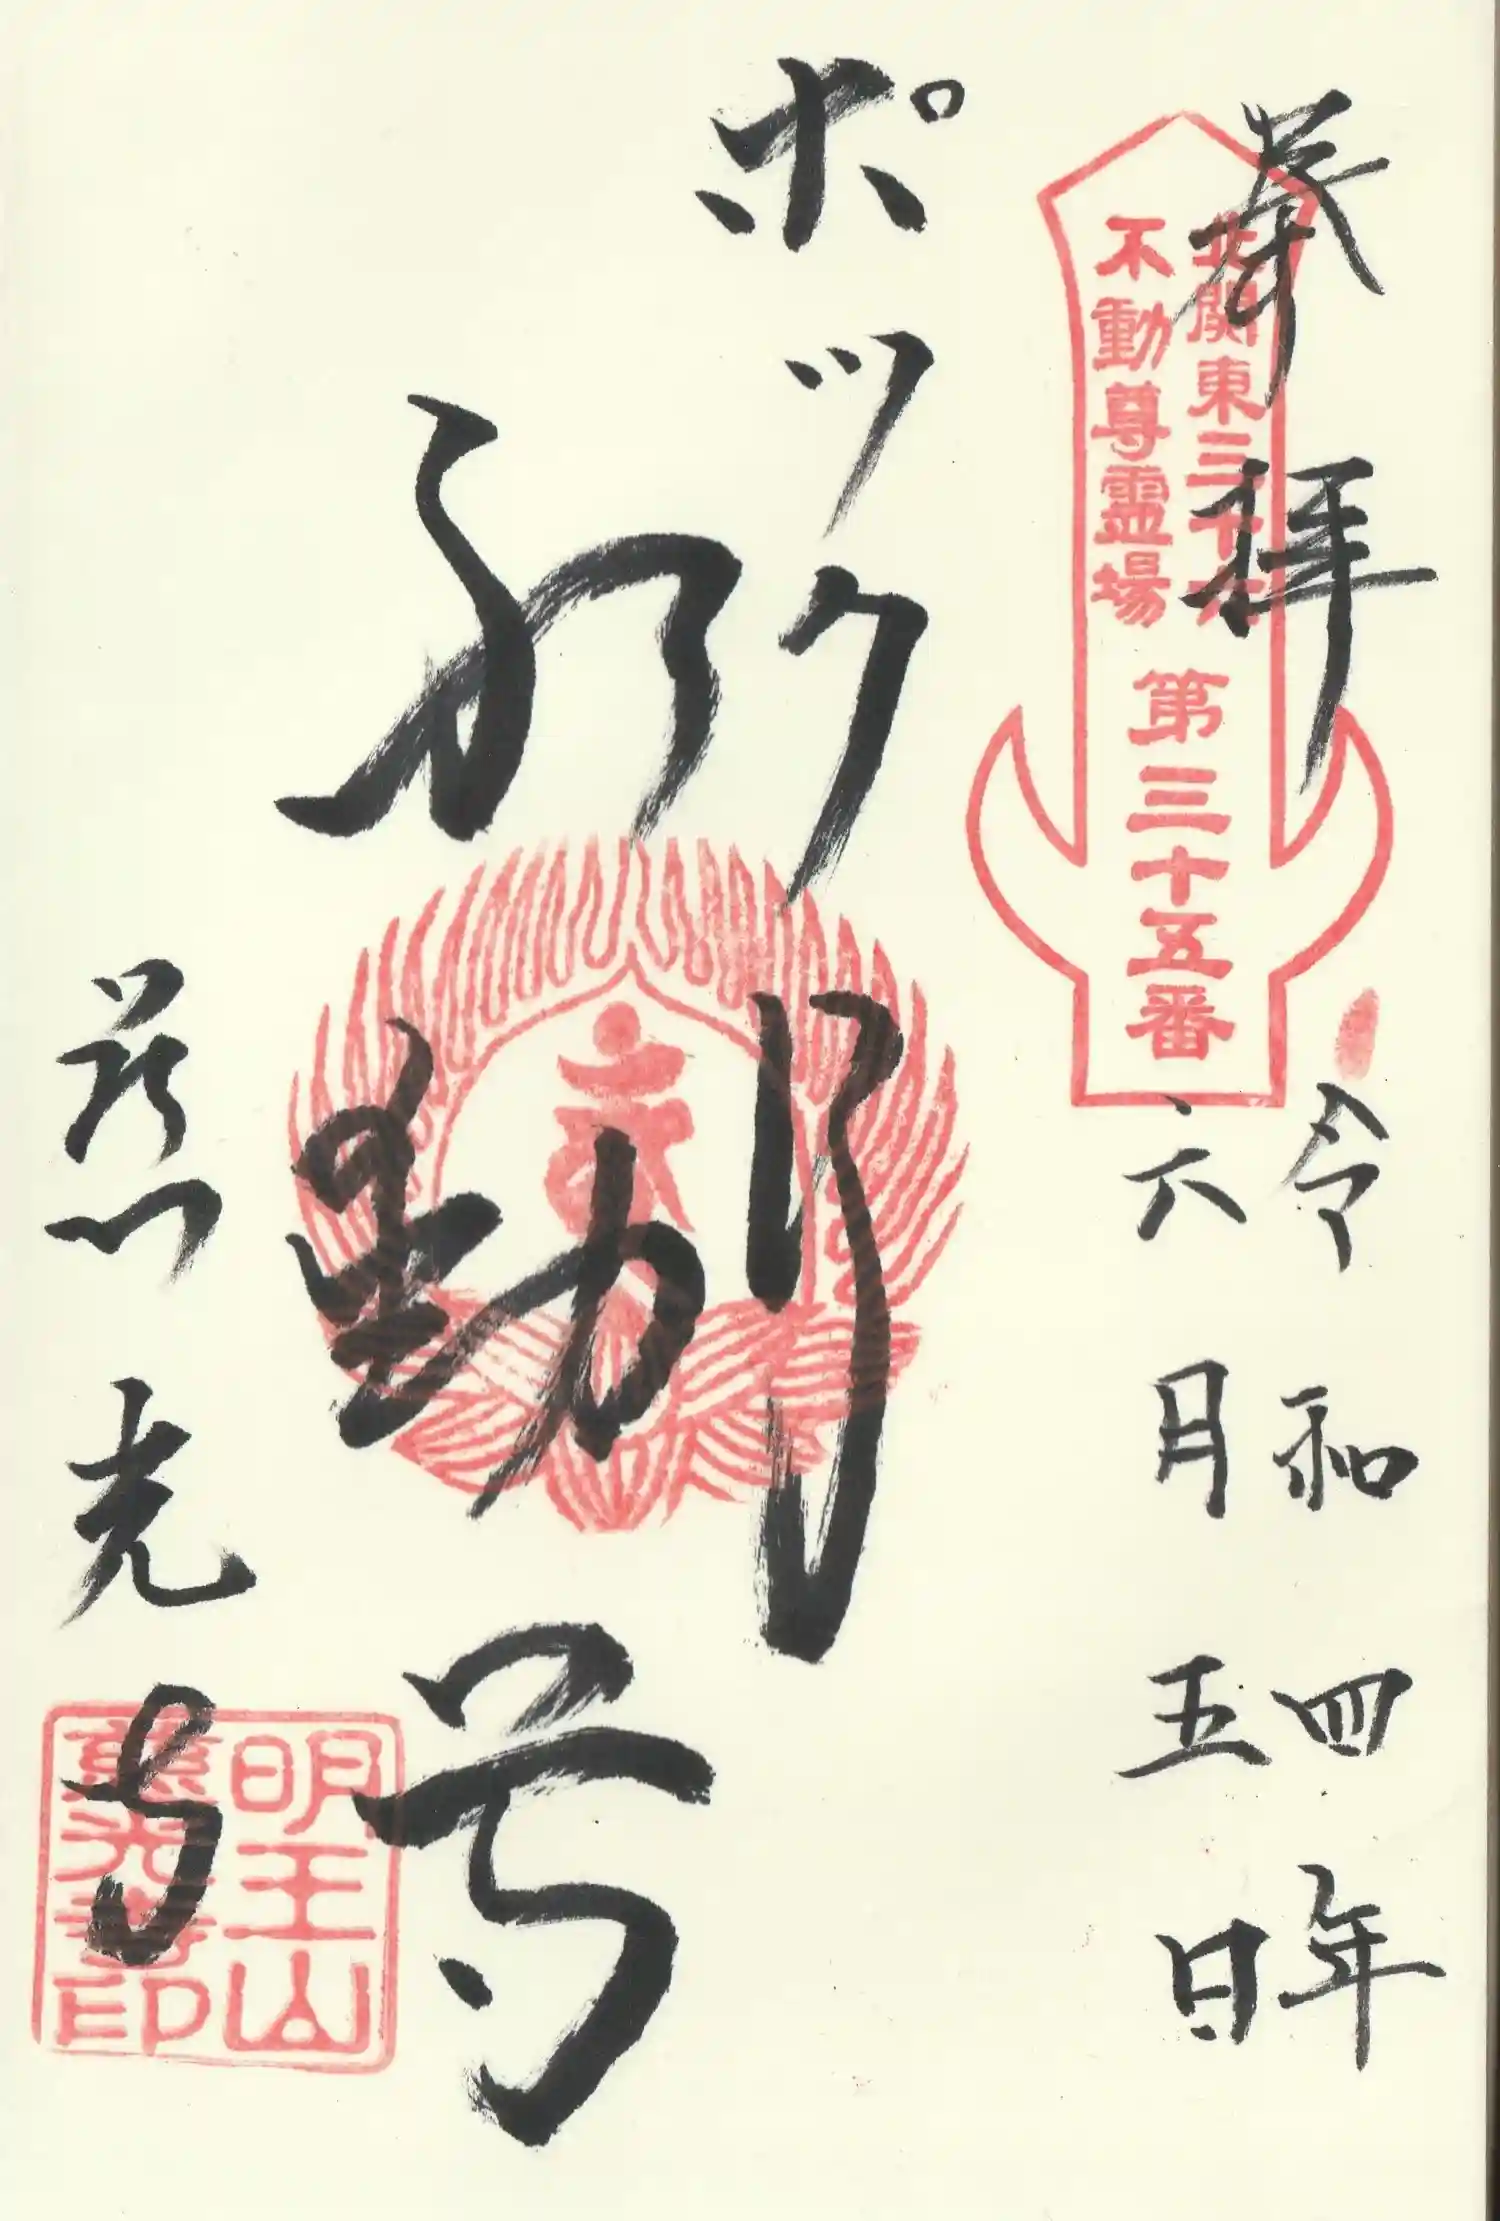 奉拝
令和四年
六月五日
北関東三十六
不動尊霊場
第三十五番
ポックリ
不動尊
慈光寺
明王山
慈光寺印